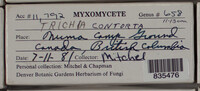 Acc # 11,792 MYXOMYCETE Genus # 658
TRICHIA CONTORTA
Place Numa Camp Ground
Canada, British Columbia
Date 7-11-81 Mitchel
Personal collection: Mitchel & Chapman
Denver Botanic Gardens Herbarium of Fungi
835476